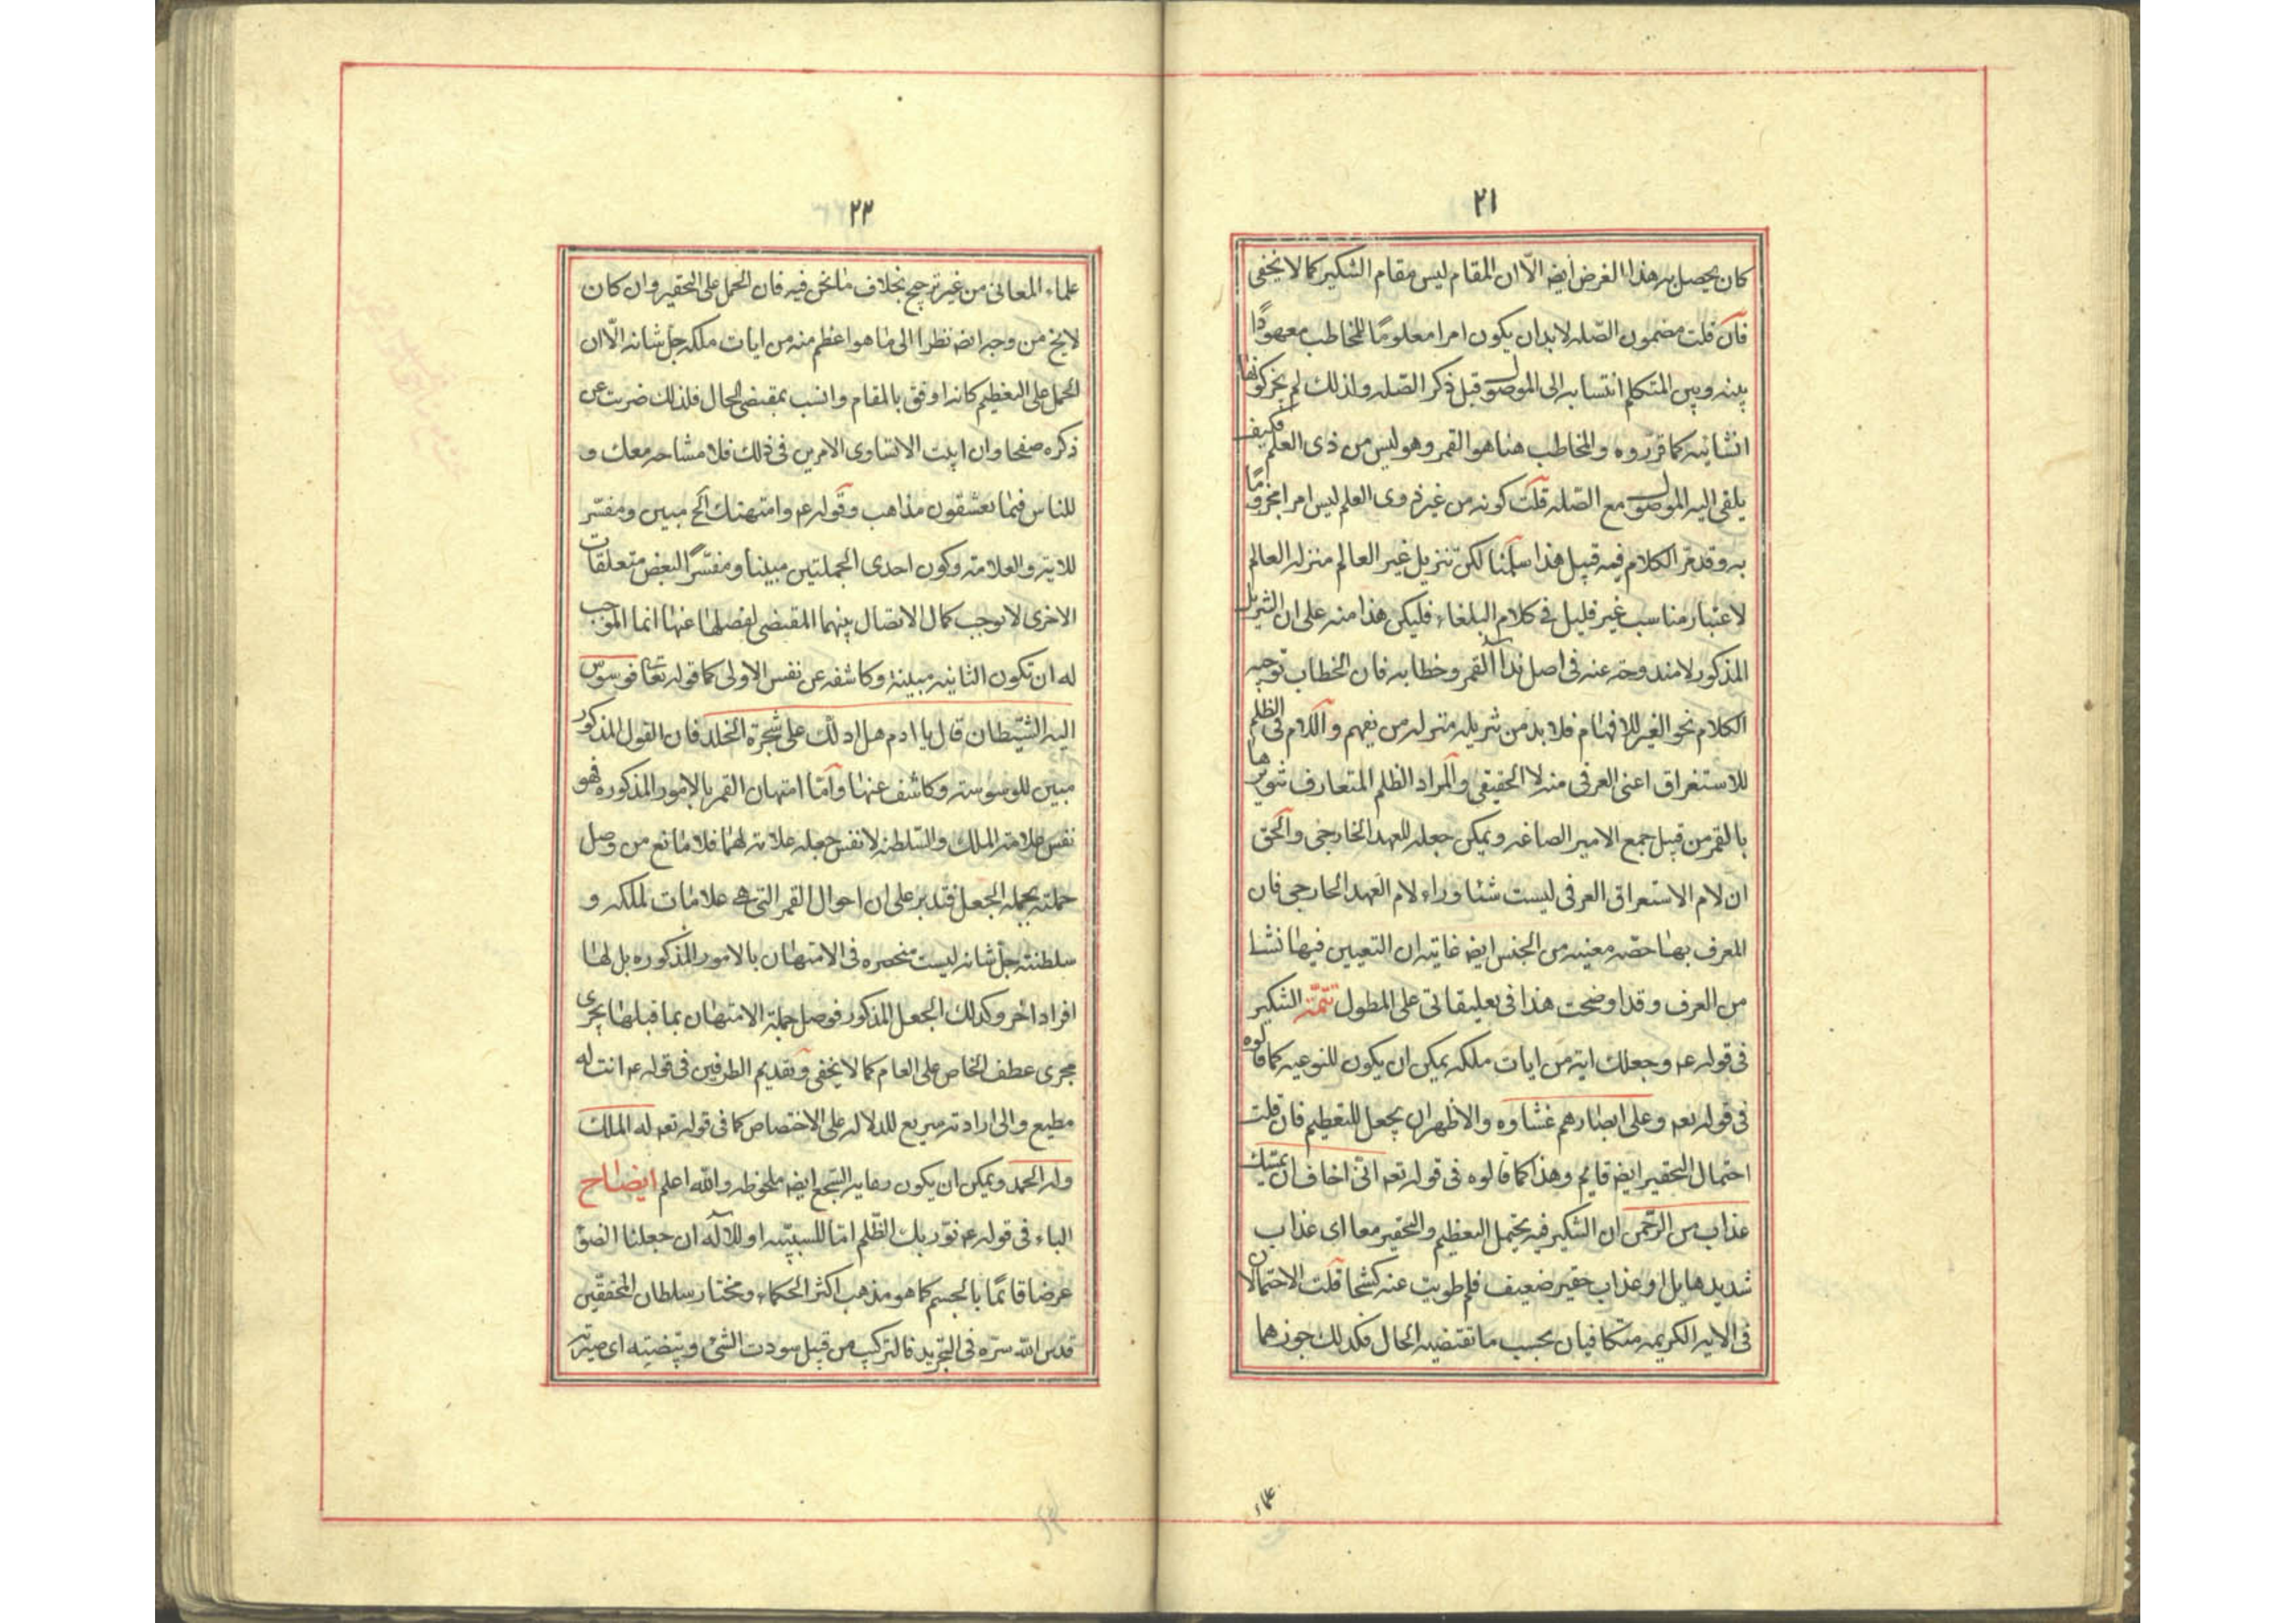 ٢١
كان يحصل به هذا الغرض أيضه الّا ان المقام ليس مقام التنكير كما لا يخفى
فان قلت مضمون الصّله لابد ان يكون امرا معلومًا للمخاطب معهودًا
بينه وبين المتكلم انتسابه الى الموصول قبل ذكر الصّله ولذلك لم يجز كونها
انشائيه كما قرّروه والمخاطب هنا هو القمر وهو ليس من ذى العلم فكيف
يلقى اليه الموصول مع الصّله قلت كونه من غير ذوى العلم ليس امرا مجزومًا
به وقد مرّ الكلام فيه قبيل هذا سلّمنا لكن تنزيل غير العالم منزله العالم
لاعتبار مناسب غير قليل فى كلام البلغاء فليكن هذا منه على ان التنزيل
المذكور لا مندوحه عنه فى اصل نداء القمر وخطابه فان الخطاب توجيه
الكلام نحو الغير للافهام فلابد من تنزيله منزله من يفهم واللام فى الظلم
للاستغراق اعنى العرفى منه لا الحقيقى والمراد الظلم المتعارف تنويرها
بالقمر من قبيل جمع الامير الصاغه ويمكن جعله للعهد الخارجى والحق
ان لام الاستغراق العرفى ليست شئا وراء لام العهد الخارجى فان
المعرف بها حصّه معينه من الجنس ايضه غايته ان التعيين فيها نشا
من العرف وقد اوضحت هذا فى تعليقاتى على المطول تتمّة التنكير
فى قوله عه وجعلك ايه من ايات ملكه يمكن ان يكون للنوعيه كما قالوه
فى قوله تعه وعلى ابصارهم غشاوه والاظهر ان يجعل للتعظيم فان قلت
احتمال التحقير ايضه قايم وهذا كما قالوه فى قوله تعه انّى اخاف ان يمسّك
عذاب من الرّحمن ان التنكير فيه يحتمل التعظيم والتحقير معا اى عذاب
شديد هايل او عذاب حقير ضعيف فلم طويت عنه كشحا قلت الاحتمالان
فى الايه الكريمه متكافيان بحسب ما تقتضيه الحال فكذلك جوزهما
علماء
٢٢
علماء المعانى من غير ترجيح بخلاف ما نحن فيه فان الحمل على التحقير وان كان
لايخ من وجه ايضه نظرا الى ما هو اعظم منه من ايات ملكه جلّ شانه الّا ان
الحمل على التعظيم كانه اوفق بالمقام وانسب بمقتضى الحال فلذلك ضربت عن
ذكره صفحا وان ابيت الا تساوى الامرين فى ذلك فلا مشاحه معك و
للناس فيما يعشقون مذاهب وقوله عه وامتهنك الخ مبين ومفسّر
للايه والعلامه وكون احدى الجملتين مبينا ومفسّرًا لبعض متعلقات
الاخرى لا يوجب كمال الاتصال بينهما المقتضى لفصلها عنها انما الموجب
له ان تكون الثانيه مبينة وكاشفه عن نفس الاولى كما قوله تعا فوسوس
اليه الشيطان قال يا ادم هل ادلّك على شجرة الخلد فان القول المذكور
مبين للوسوسته وكاشف عنها وامّا امتهان القمر بالامور المذكوره فهو
نفس علامه الملك والسّلطنه لا نفس جعله علامه لهما فلا مانع من وصل
جملته بجملة الجعل فتدبر على ان احوال القمر التى هى علامات لملكه و
سلطنته جلّ شانه ليست منحصره فى الامتهان بالامور المذكوره بل لها
افراد اخر وكذلك الجعل المذكور فوصل جملة الامتهان بما قبلها يجرى
مجرى عطف الخاص على العام كما لا يخفى وتقديم الظرفين فى قوله عه انت له
مطيع والى ارادته سريع للدلاله على الاختصاص كما فى قوله تعه له الملك
وله الحمد ويمكن ان يكون رعايه السّجع ايضه ملحوظه والله اعلم ايضاح
الباء فى قوله عه نوّر بك الظّلم امّا للسببيّه او للاله ان جعلنا الضوء
عرضا قائمًا بالجسم كما هو مذهب اكثر الحكماء ومختار سلطان المحققين
قدس الله سرّه فى التجريد فالتركيب من قبيل سودت الشئ وبيّضته اى صيّرته